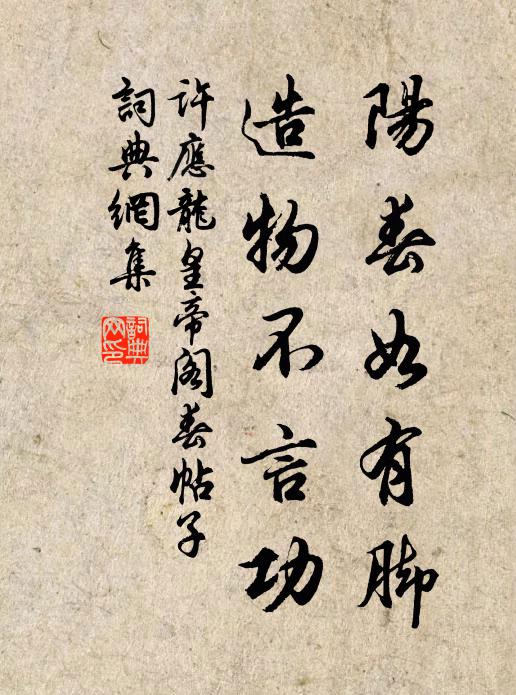 陽春如有脚
造物不言功
許應龍皇帝閣春帖子
詞典網集
詞典
网印